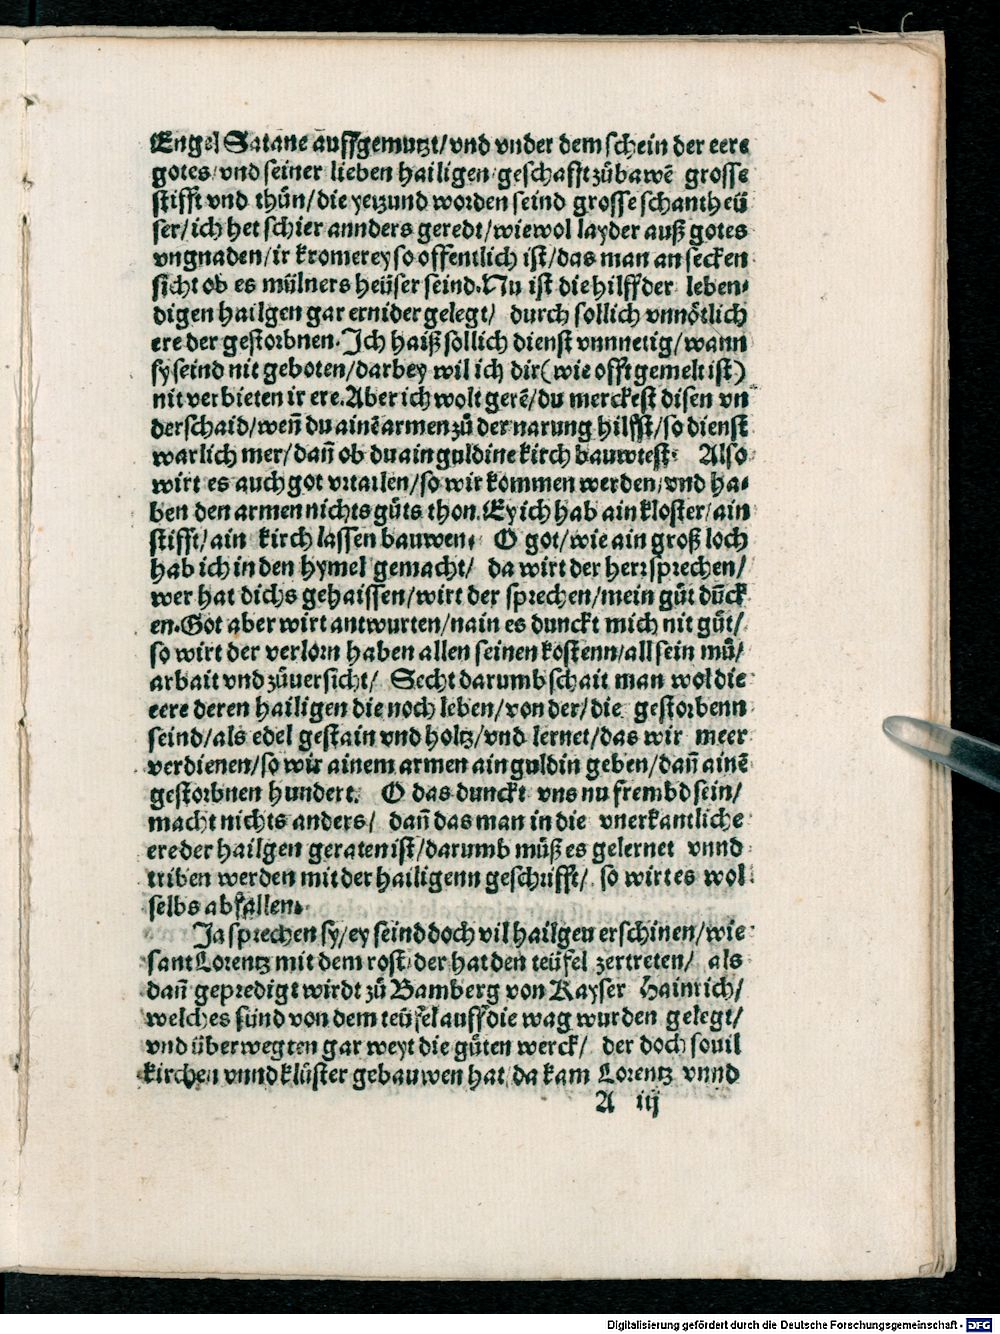 Engel Satane auffgemutzt/vnd vnder dem schein der eere
gotes/vnd seiner lieben hailigen/geschafft zůbawē grosse
stifft vnd thůn/die yetzund worden seind grosse schantheü
ser/ich het schier annders geredt/wiewol layder auß gotes
vngnaden/ir kromerey so offentlich ist/das man an secken
sicht ob es mülners heüser seind. Nu ist die hilff der leben-
digen hailgen gar ernider gelegt/ durch sollich vnnötlich
ere der gestorbnen. Ich haiß sollich dienst vnnnetig/wann
sy seind nit geboten/darbey wil ich dir(wie offt gemelt ist)
nit verbieten ir ere. Aber ich wolt gerē/du merckest disen vn
derschaid/weñ du ainē armen zů der narung hilfft/so dienst
warlich mer/dañ ob du ain guldine kirch bauwtest. Also
wirt es auch got vrtailen/so wir kommen werden/vnd ha-
ben den armen nichts gůts thon. Ey ich hab ain kloster/ain
stifft/ain kirch lassen bauwen. O got/wie ain groß loch
hab ich in den hymel gemacht/ da wirt der herr sprechen/
wer hat dichs gehaissen/wirt der sprechen/mein gůt dūck
en. Got aber wirt antwurten/nain es dunckt mich nit gůt/
so wirt der verlorn haben allen seinen kostenn/all sein mů/
arbait vnd zůuersicht/ Secht darumb schait man wol die
eere deren hailigen die noch leben/von der/die gestorbenn
seind/als edel gestain vnd holtz/vnd lernet/das wir meer
verdienen/so wir ainem armen ain guldin geben/dañ ainē
gestorbnen hundert. O das dunckt vns nu frembd sein/
macht nichts anders/ dañ das man in die vnerkantliche
ere der hailgen geraten ist/darumb můß es gelernet vnnd
triben werden mit der hailigenn geschrifft/ so wirt es wol
selbs abfallen.
Ja sprechen sy/ey seind doch vil hailgen erschinen/wie
sant Lorentz mit dem rost/der hat den teüfel zertreten/ als
dañ gepredigt wirdt zů Bamberg von Kayser Hainrich/
welches sünd von dem teüfel auff die wag wurden gelegt/
vnd überwegten gar weyt die gůten werck/ der doch souil
kirchen vnnd klüster gebauwen hat/da kam Lorentz vnnd
A iij
Digitalisierung gefördert durch die Deutsche Forschungsgemeinschaft - DFG